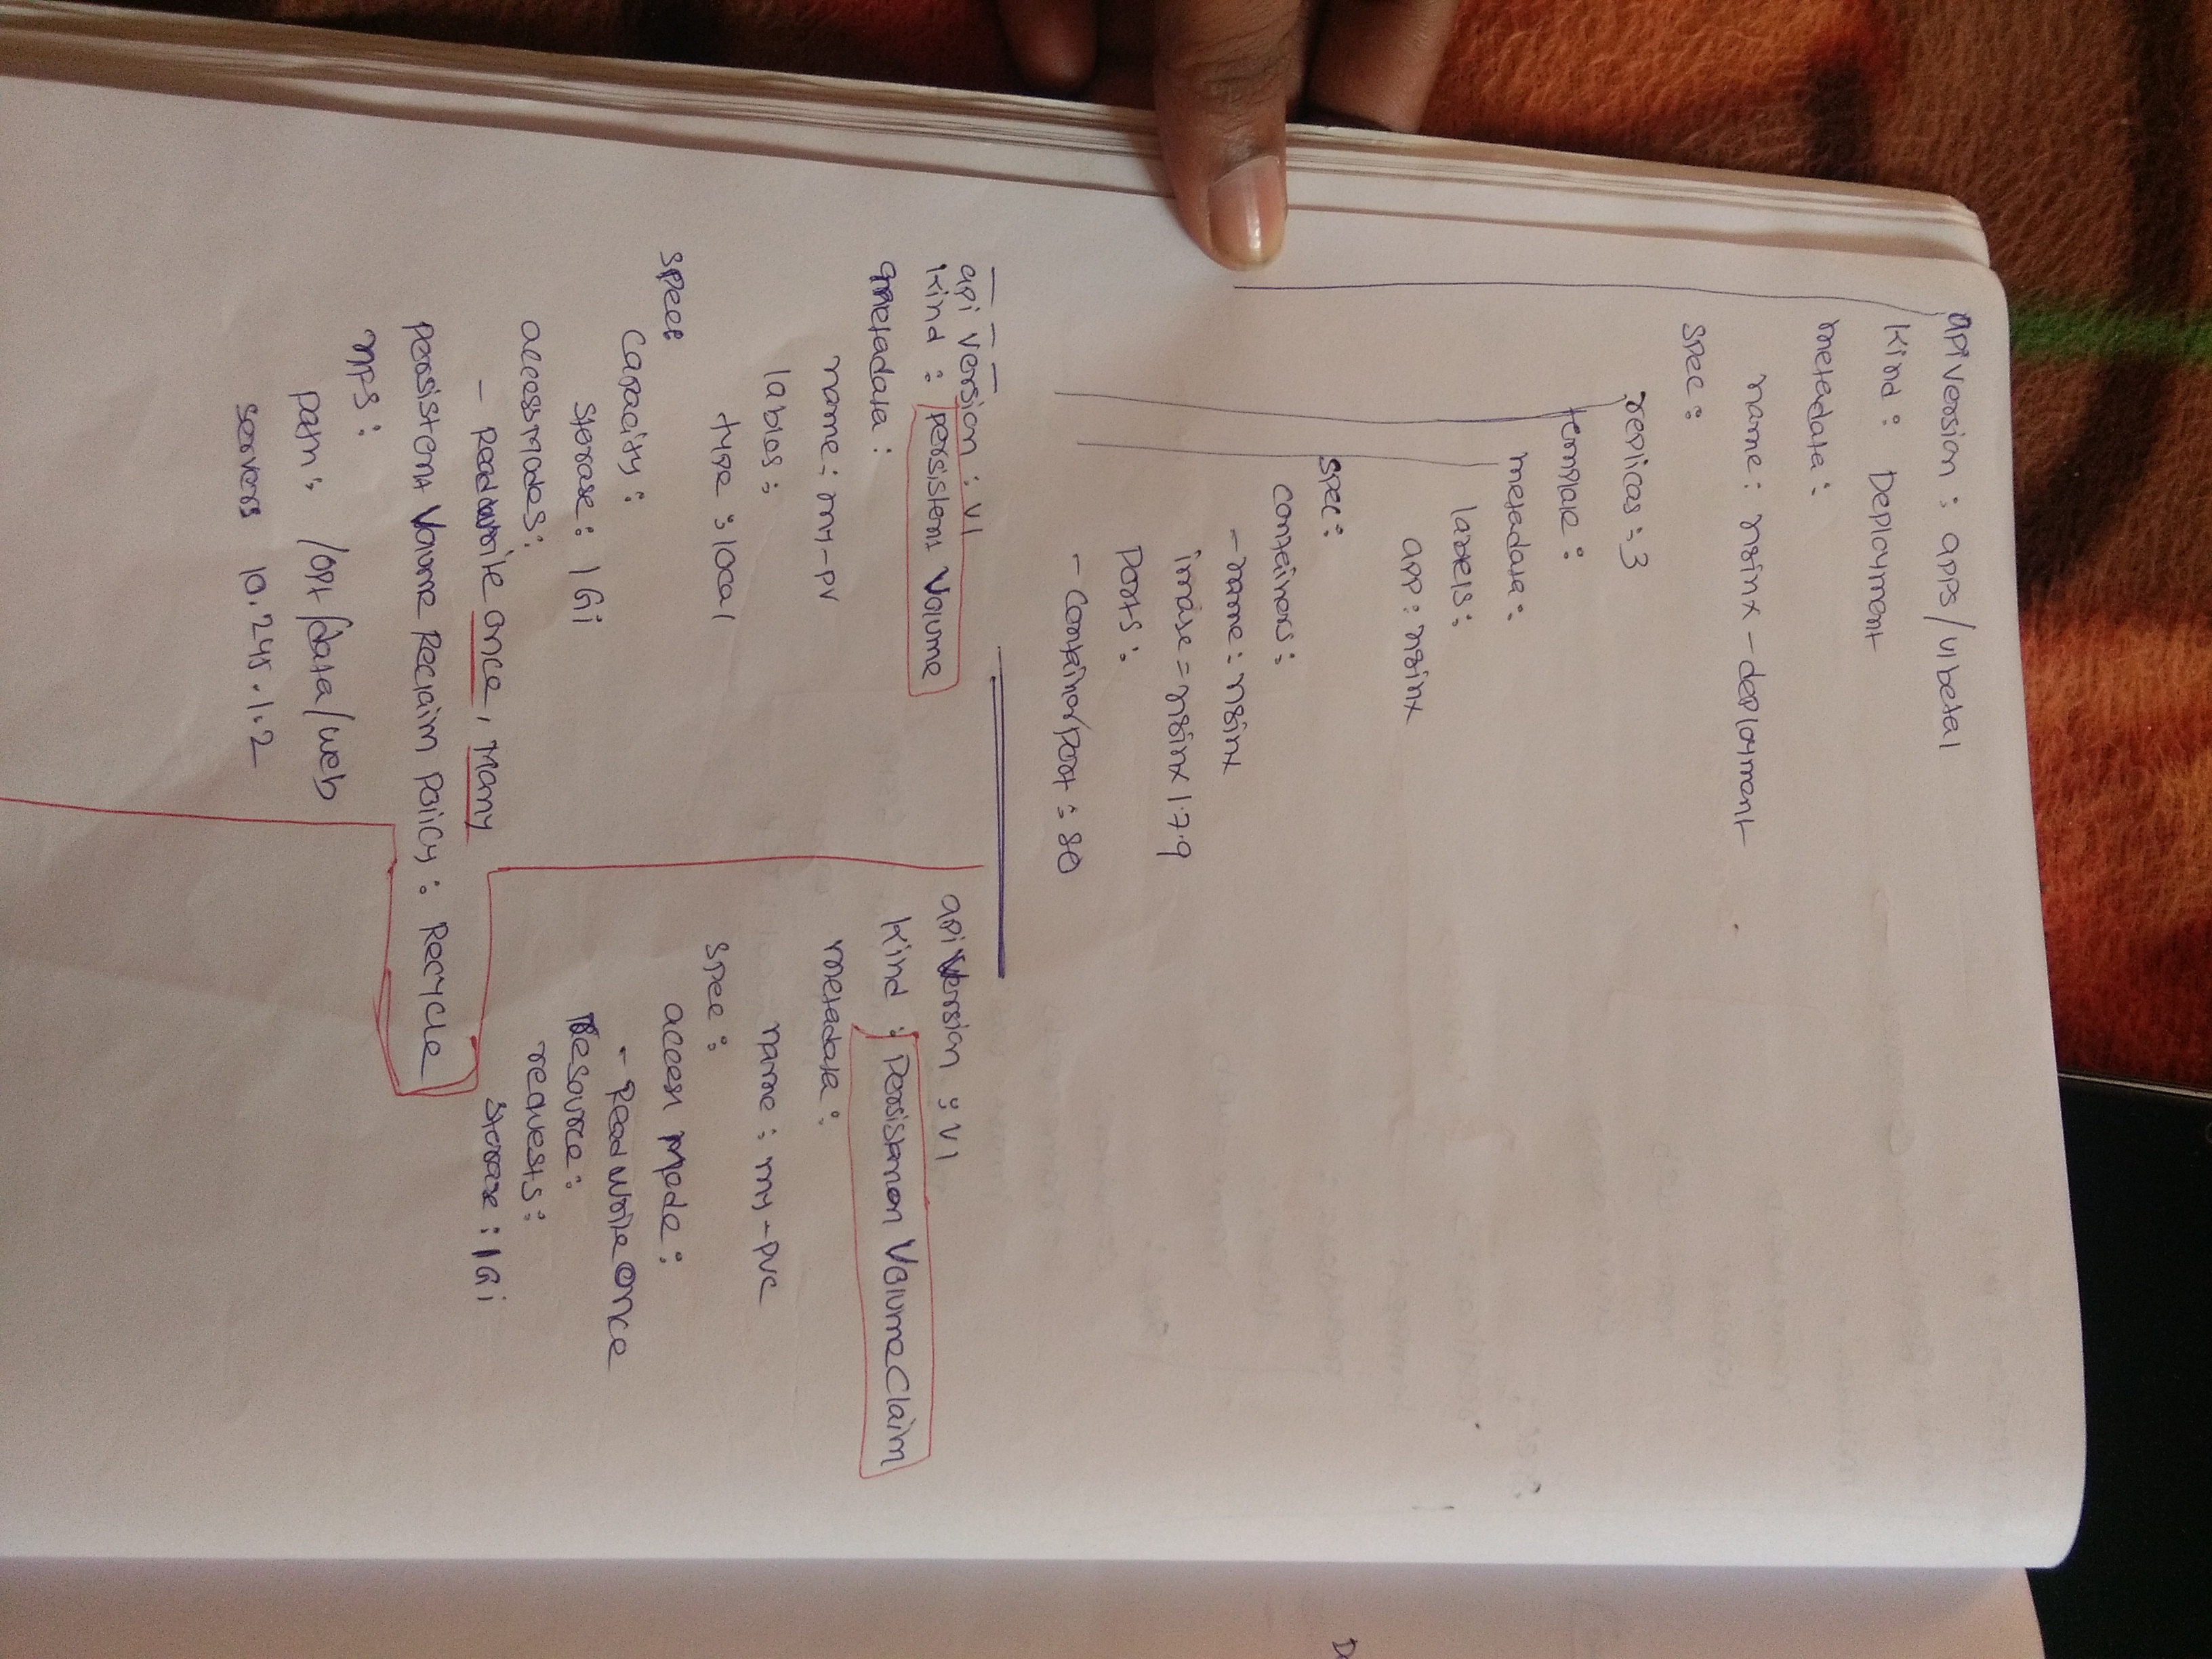 apiversion : apps/v1beta1
Kind : Deployment
metadata :
name : nginx-deployment
spec :
replicas : 3
template :
metadata :
labels :
app : nginx
spec :
containers :
- name : nginx
image = nginx 1.7.9
Ports :
- containerport : 80
api Version : V1
Kind : Persistent Volume
metadata :
name : my-pv
lables :
type : local
spec :
capacity :
storage : 1 Gi
accessModes :
- Readwrite once, Many
Persistent Volume Reclaim Policy : Recycle
nfs :
path : /opt/data/web
servers 10.245.1.2
apiVersion : V1
Kind : Persistenon VolumeClaim
metadata :
name : my-pvc
spec :
access Mode :
- Readwrite Once
Resource :
requests :
storage : 1Gi